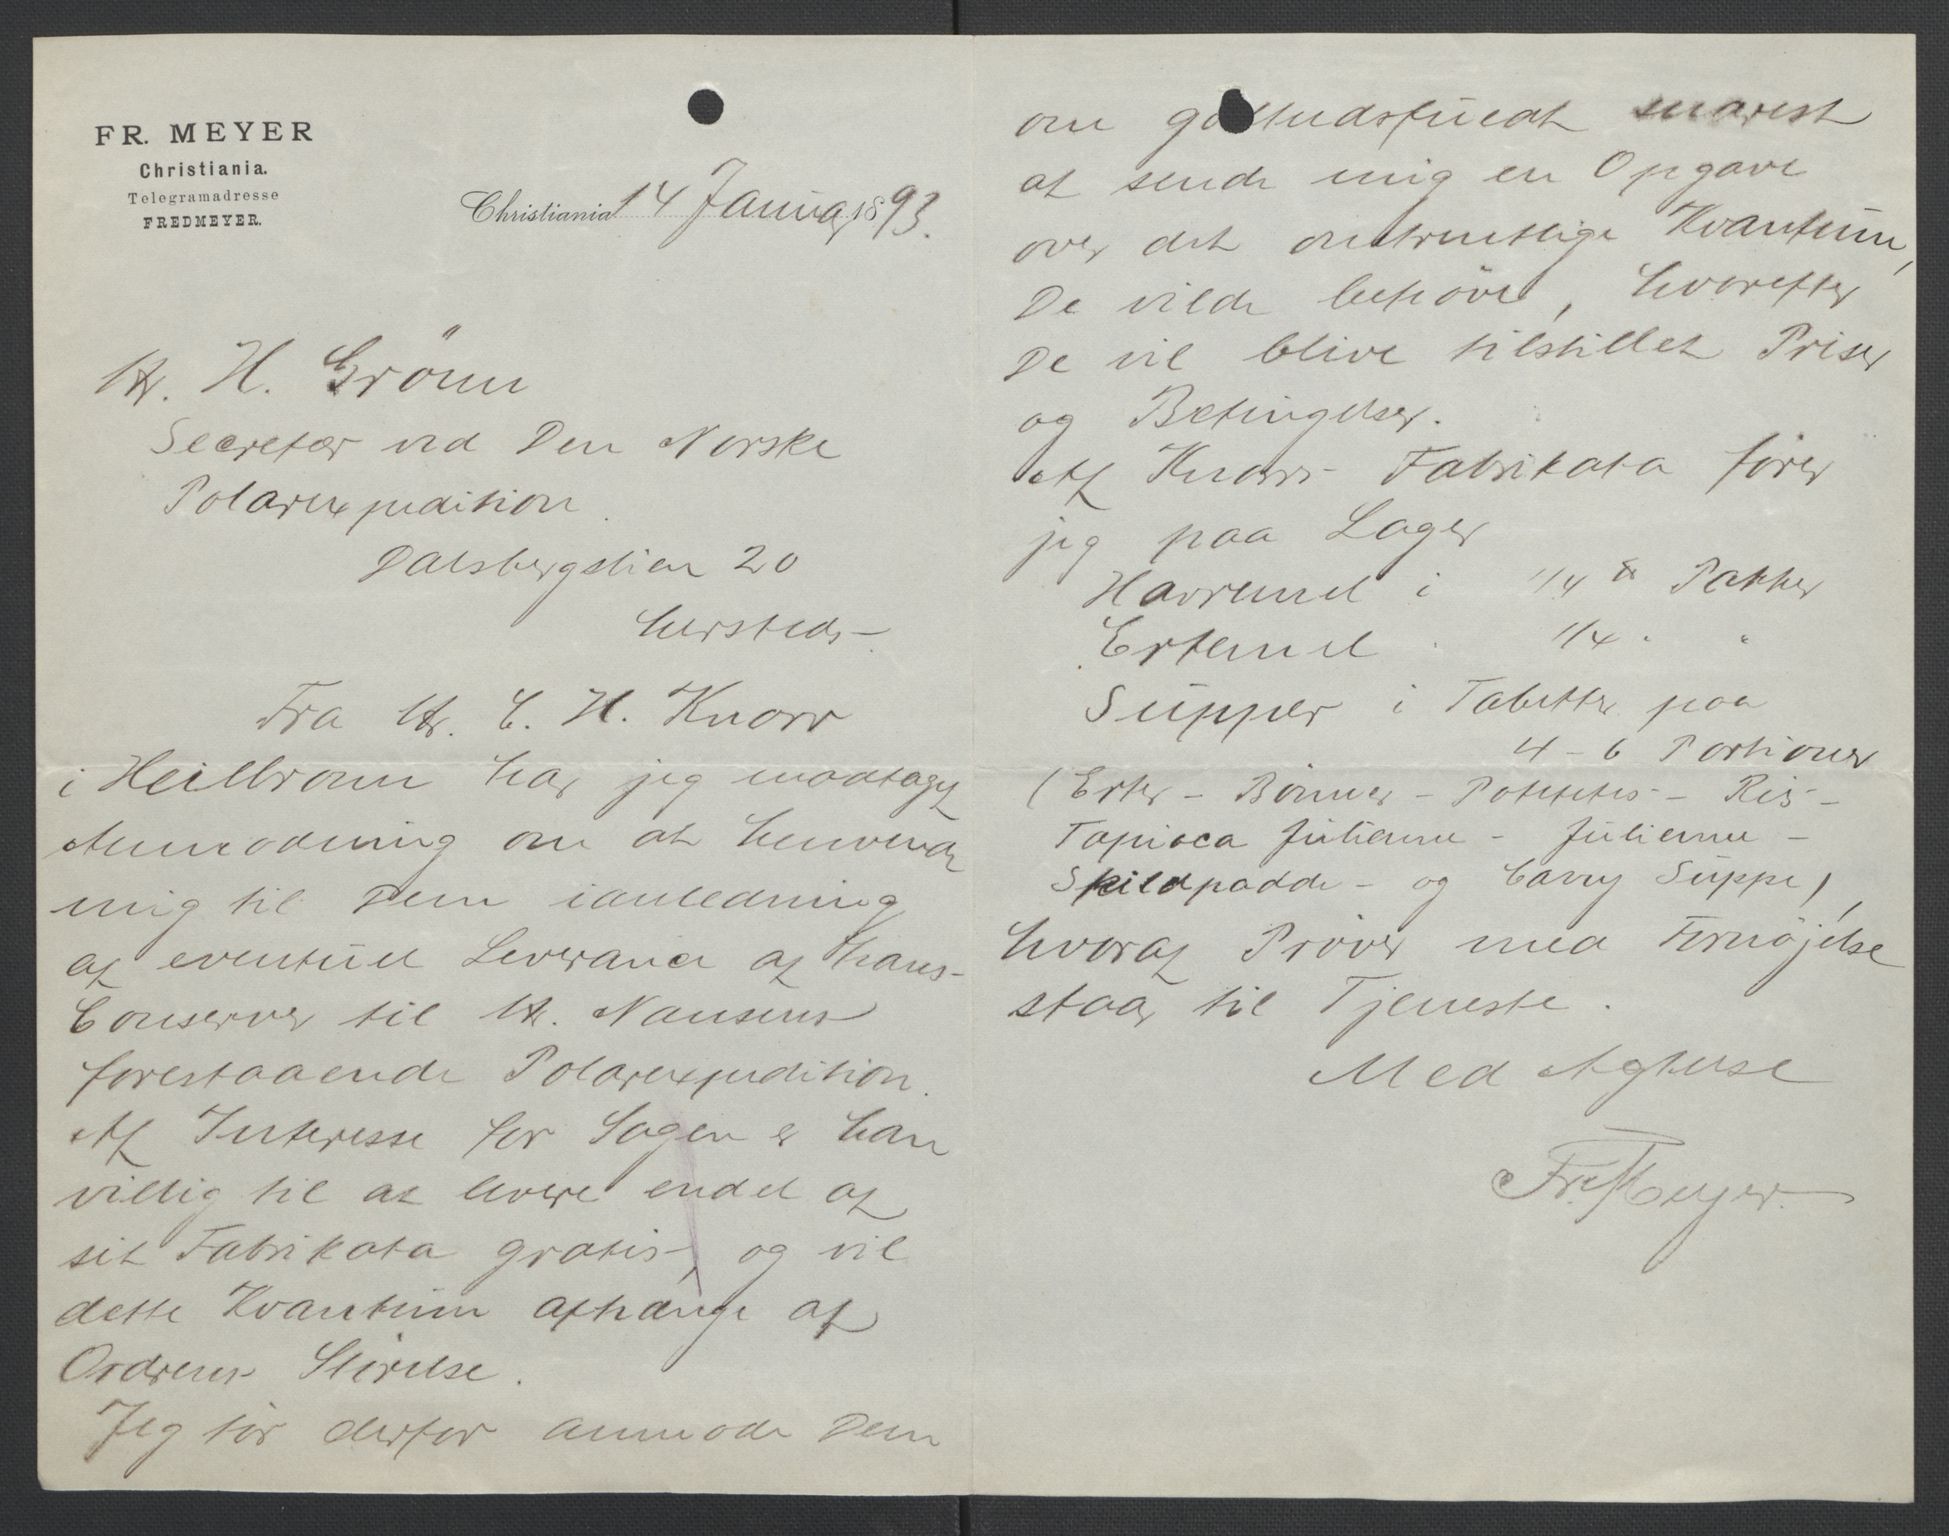 FR. MEYER
Christiania.
Telegramadresse
FREDMEYER.
Christiania 14 Januar 1893.
Hr. H. Grönn
Secretær ved Den Norske
Polarexpedition.
Dalsbergstien 20
hersteds
Fra Hr. C. H. Knorr
i Heilbronn har jeg modtaget
Anmodning om at henvende
mig til Dem ianledning
af eventuel Leverance af hans
Conserver til Hr. Nansens
forestaaende Polarexpedition.
Af Interesse for Sagen er han
villig til at levere endel af
sit Fabrikata gratis, og vil
dette Kvantum afhænge af
Ordrens Störelse.
Jeg tör derfor anmode Dem
om godhedsfuldt snarest
at sende mig en Opgave
over det omtrentlige Kvantum,
De vilde behöve, hvorefter
De vil blive tilstillet Priser
og Betingelser.
Af Knorrs Fabrikata förer
jeg paa Lager
Havremel i 1/4 ℔ Pakker
Ertemel " 1/4 " "
Supper i Tabletter paa
4-6 Portioner
(Erter - Bönner - Potetes - Ris -
Tapioca Julienne - Julienne -
Skildpadde - og Carry Suppe),
hvoraf Pröver med Fornöjelse
staar til Tjeneste.
Med Agtelse
Fr. Meyer.